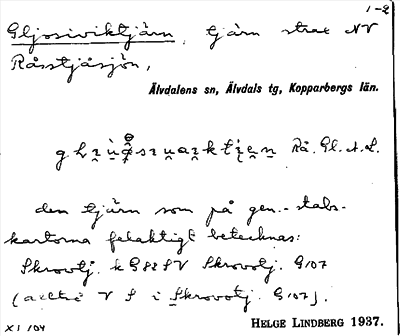 1-2
Gljosiviktjärn, tjärn strax NV
Råsstjåsjön,
Älvdalens sn, Älvdals tg, Kopparbergs län.
Rå. Gl. A. L.
den tjärn som på gen.-stabs-
kartorna felaktigt betecknas:
Skrovotj. k G 82 SV Skrovotj. G 107
V S i Skrovotj. G 107).
XI 104
HELGE LINDBERG 1937.